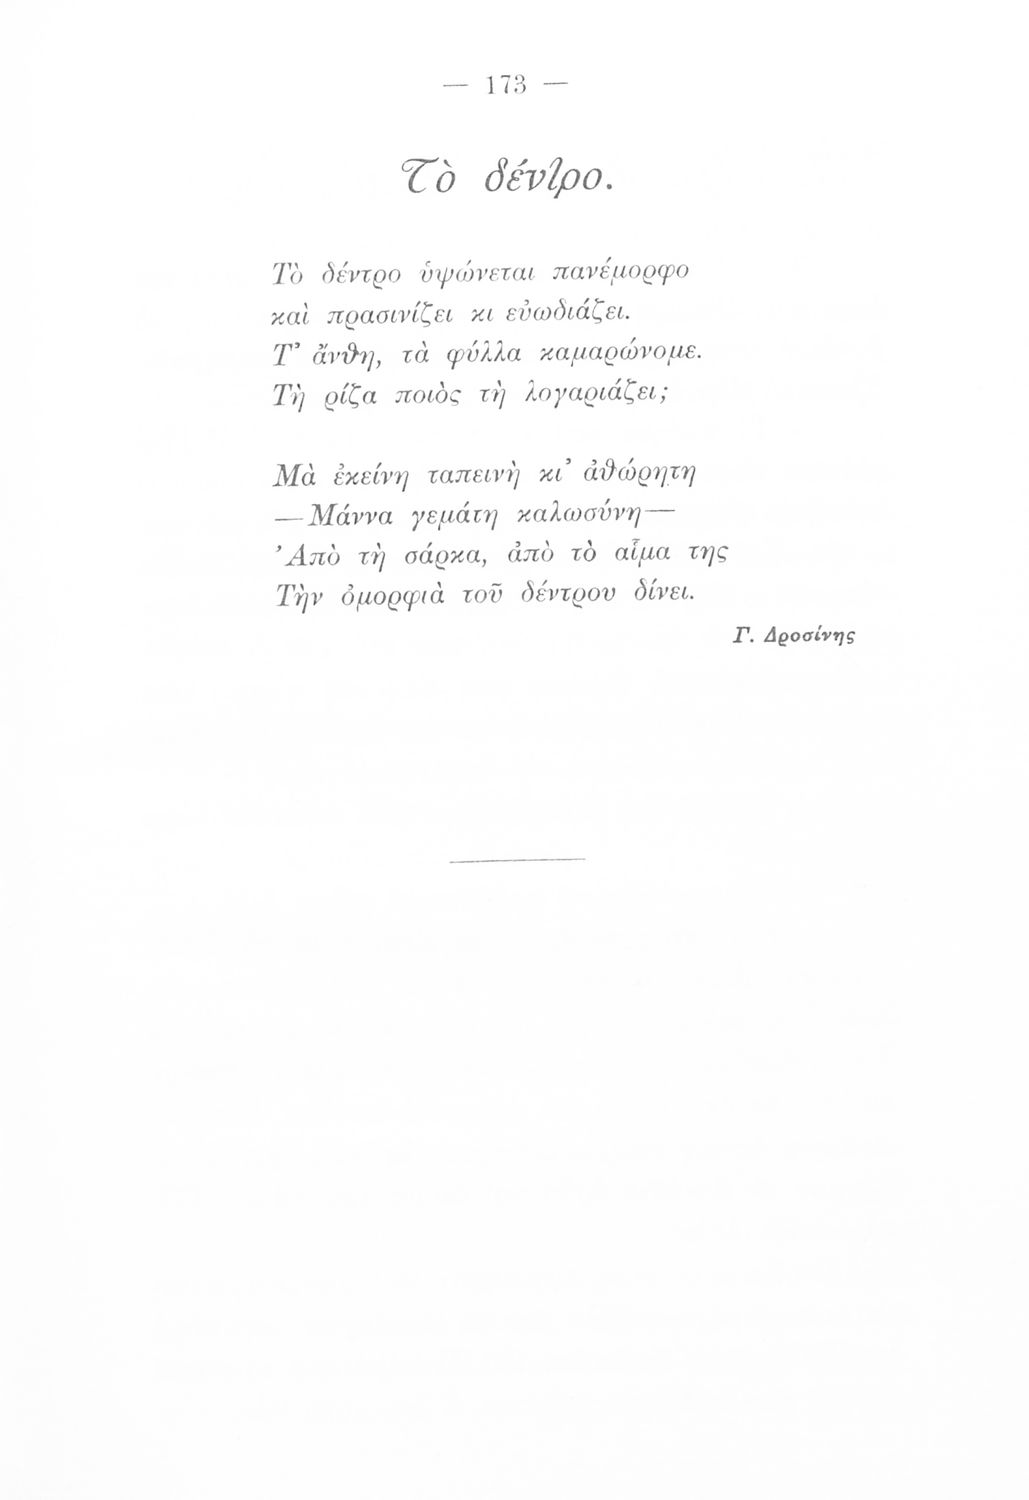 — 173 —
Τὸ δέντρο.
Τὸ δέντρο ὑψώνεται πανέμορφο
καὶ πρασινίζει κι εὐωδιάζει.
Τ᾿ ἄνθη, τὰ φύλλα καμαρώνομε.
Τὴ ρίζα ποιὸς τὴ λογαριάζει;
Μὰ ἐκείνη ταπεινὴ κι᾿ ἀθώρητη
—Μάννα γεμάτη καλωσύνη—
᾿Απὸ τὴ σάρκα, ἀπὸ τὸ αἷμα της
Τὴν ὀμορφιὰ τοῦ δέντρου δίνει.
Γ. Δροσίνης